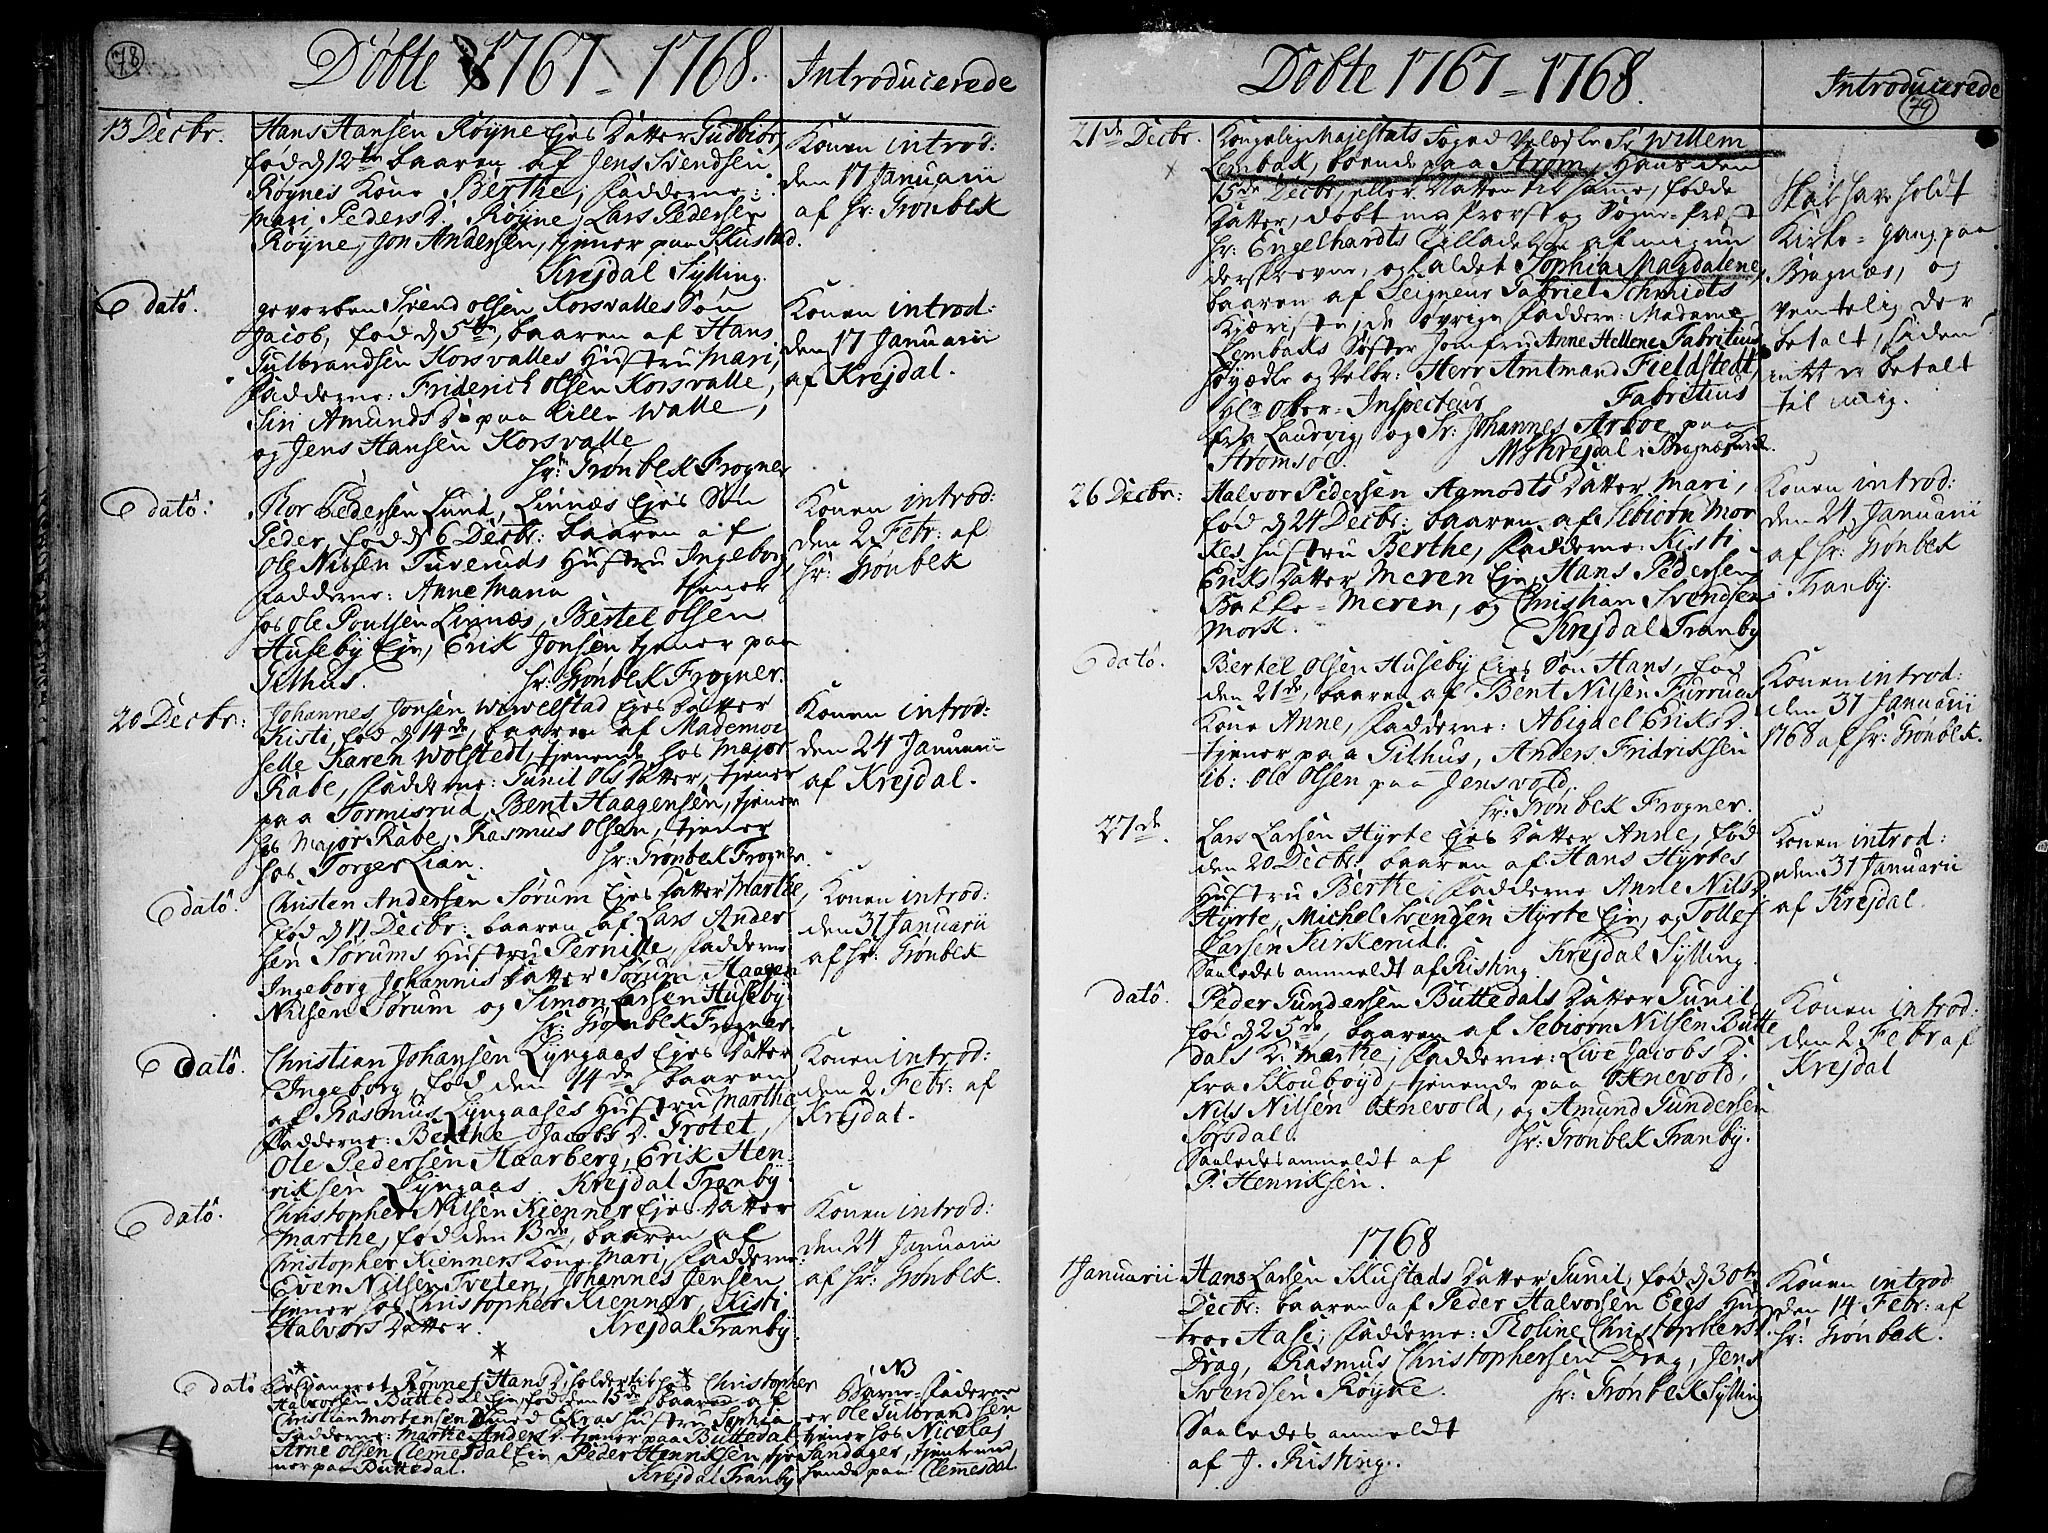 78
Döbte 1767 - 1768.
Introducerede
13 Decbr. Hans Hansen Røyne Ejes Datter Gudbiør,
fød d 12te baaren af Jens Svendsen
Røynes Kone Berthe, Fadderne:
Mari Peders D. Røyne, Lars Pedersen
Røyne, Jon Andersen, tjener paa Skustad.
Krejdal Sylling.
Konen introd:
den 17 Januarii
af hr: Grønbek
dató. gevorben Svend Olsen Korsvalles Søn
Jacob, fød d 5te, baaren af Hans
Gulbrandsen Korsvalles Hustru Mari,
Fadderne: Friderich Olsen Korsvalle,
Siri Amunds D. paa Lille Walle,
og Jens Hansen Korsvalle
hr: Grønbek Frogner
Konen introd:
den 17 Januarii
af Krejdal.
dató. Thor Pedersen Lund, Linnæs Ejes Søn
Peder, fød d 6 Decbr: baaren af
Ole Nilsen Tuveruds Hustru Ingeborg,
Fadderne: Anne Maria tjener
hos Ole Poulsen Linnæs, Bertel Olsen
Huseby Eje, Erik Jonsen tjener paa
Gilhus. hr: Grønbek Frogner.
Konen introd:
den 2 Febr: af
hr: Grønbek
20 Decbr: Johannes Jonsen Wewelstad Ejes Datter
Kisti, fød d 14de, baaren af Mademoi
selle Karen Wolstedt, tjenende hos Major
Rabe, Fadderne: Gunil Ols Datter, tjener
paa Gormisrud, Bent Haagensen, tjener
hos Major Rabe, Rasmus Olsen, tjener
hos Torger Lian. hr: Grønbek Frogner.
Konen introd:
den 24 Januarii
af Krejdal.
dató. Christen Andersen Sørum Ejes Datter Marthe,
fød d 17 Decbr: baaren af Lars Ander
sen Sørums Hustru Pernille, Fadderne
Ingeborg Johannis Datter Sørum, Haagen
Nilsen Sørum og Simon Larsen Huseby.
hr: Grønbek Frogner.
Konen introd:
den 31 Januarii
af hr: Grønbek
dató. Christian Johansen Lyngaas Ejes Datter
Ingeborg, fød den 14de, baaren
af Rasmus Lyngaases Hustru Marthe
Fadderne: Berthe Jacobs D. Grotet,
Ole Pedersen Haarberg, Erik Hen-
riksen Lyngaas Krejdal Tranby.
Konen introd:
den 2 Febr: af
Krejdal.
dató. Christopher Nilsen Kienner Ejes Datter
Marthe, fød den 13de, baaren af
Christopher Kienners Kone Mari, Fadderne:
Even Nilsen Tveten, Johannes Jensen
tjener hos Christopher Kienner, Kisti
Halvors Datter. Krejdal Tranby
Konen introd:
den 24 Januarii
af hr: Grønbek.
dató Rønnef Hans D. Christopher
Halvorsen Buttedal Eje, fød den 15de baaren af
Christian Mortensen Hustru Sophia
Fadderne: Marthe Anders D. tjener paa Buttedal
Arne Olsen Clemesdal Eje Peder Henriksen, tje
ner paa Buttedal. Krejdal Tranby
NB
Barne-Faderen
er Ole Gulbrandsen
tjener hos Nicolas
Sandager, tjent und
paa Clemesdal.
79
Döbte 1767 - 1768.
Introducerede
21de Decbr. Kongelig Majestats Foged Velædle Sr Willem
Lembak, boende paa Strøm, Hans den
15de Decbr, eller Natten til samme, fødde
Datter, døbt med Provst og Sogne-Præst
hr: Engelhardts Tilladelse af mig un
derskrevne, og kaldet Sophia Magdalene,
baaren af Seigneur Gabriel Schmidts
Kjæriste, de øvrige Faddere: Madame
Lembaks Søster Jomfru Anne Hellene Fabritius
høyædle og Velbr: Herr Amtmand Fieldstedt,
Hr Ober-Inspecteur Fabritius
fra Laurvig, og Sr: Johannes Arboe paa
Strømsøe. Krejdal i Bragnæs Kirke.
Skal have holdt
Kirke-gang paa
Bragnæs, og
ventelig der
betalt, siden
intet er betalt
til mig.
26 Decbr: Halvor Pedersen Agmodts Datter Mari,
fød d 24 Decbr: baaren af Sebiørn Mor
kes Hustru Berthe, Fadderne: Kisti
Eriks Datter Meren Eje, Hans Pedersen
Bakke-Meren, og Christian Svendsen
Mork. Krejdal Tranby
Konen introd:
den 24 Januarii
af hr: Grønbek
i Tranby.
dató. Bertel Olsen Huseby Ejes Søn Hans, fød
den 21de, baaren af Bent Nilsen Furruas
Kone Anne, Fadderne: Abigael Eriks D.
tjener paa Gilhus, Anders Fridriksen
ib: Ole Olsen paa Jensvold.
hr: Grønbek Frogner.
Konen introd:
den 31 Januarii
1768 af hr: Grønbek.
27de. Lars Larsen Hyrte Ejes Datter Anne, fød
den 20 Decbr: baaren af Hans Hyrtes
Hustru Berthe, Fadderne Anne Nils D.
Hyrte, Michel Svendsen Hyrte Eje, og Tollef
Larsen Kirkerud.
Saaledes anmeldt af Risting. Krejdal Sylling.
Konen introd:
den 31 Januarii
af Krejdal.
dató. Peder Gundersen Buttedals Datter Gunil,
fød d 25de, baaren af Sebiørn Nilsen Butte
dals D. Marthe, Fadderne: Live Jacobs D.
fra Skoubøyd, tjenende paa Ovnevold,
Nils Nilsen Ovnevold, og Amund Gundersen
Sørsdal. hr: Grønbek Tranby.
Saaledes anmeldt af
P. Henriksen.
Konen introd:
den 2 Febr af
Krejdal
1768
1 Januarii Hans Larsen Skustads Datter Gunil, fød d 30te
Decbr: baaren af Peder Halvorsen Eegs Hus
troe Aase, Fadderne: Roline Christophers D.
Drag, Rasmus Christophersen Drag, Jens
Svendsen Røyne. hr: Grønbek Sylling
Saaledes anmeldt
af J. Risting.
Konen introd
den 14 Febr: af
hr: Grønbek.